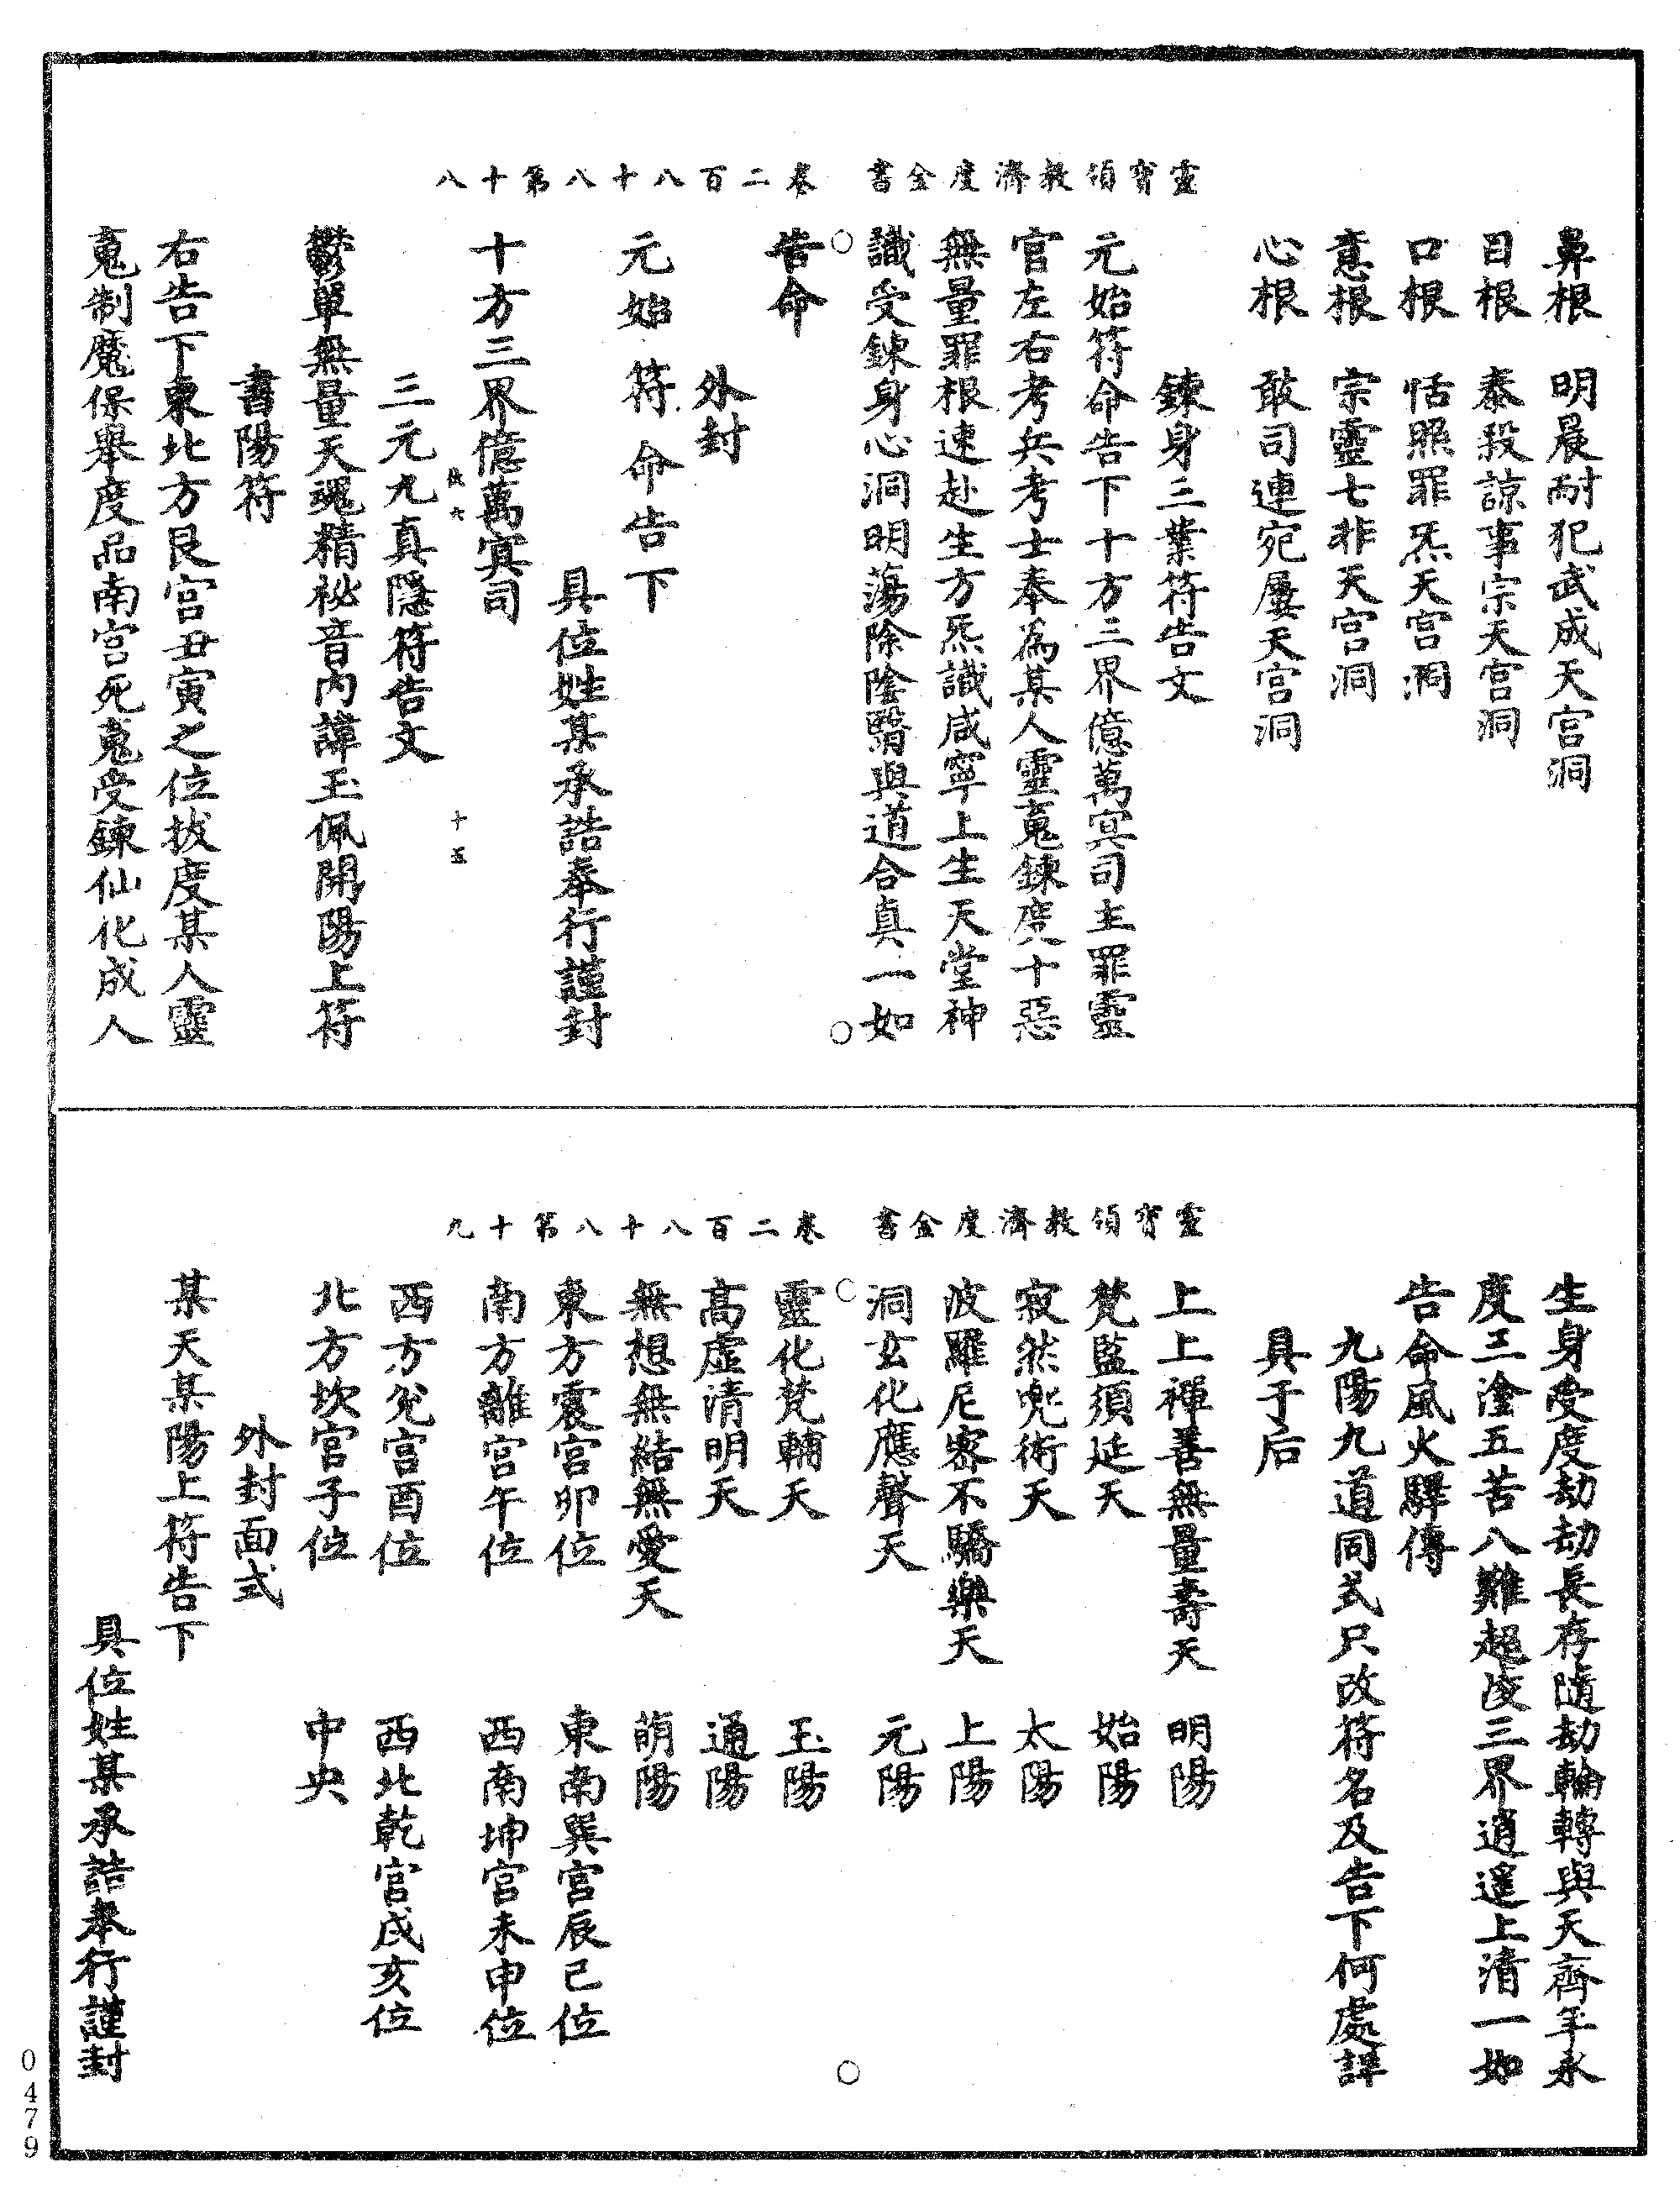 靈寶領教濟度金書　卷二百八十八第十八
鼻根　明晨耐犯武成天宮洞
目根　泰殺諒事宗天宮洞
口根　恬照罪炁天宮洞
意根　宗靈七非天宮洞
心根　敢司連宛屢天宮洞
鍊身三業符告文
元始符命告下十方三界億萬冥司主罪靈
官左右考兵考士奉為某人靈䰟鍊度十惡
無量罪根速赴生方炁識咸寧上生天堂神
識受鍊身心洞明蕩除陰翳與道合真一如
告命
外封
元始符命告下
具位姓某承誥奉行謹封
十方三界億萬冥司
六
十五
三元九真隱符告文
鬱單無量天魂精祕音內諱玉佩開陽上符
書陽符
右告下東北方艮宮丑寅之位拔度某人靈
䰟制魔保舉度品南宮死䰟受鍊仙化成人
靈寶領教濟度金書　卷二百八十八第十九
生身受度劫劫長存隨劫輪轉與天齊年永
度三塗五苦八難超凌三界逍遙上清一如
告命風火驛傳
九陽九道同式只改符名及告下何處詳
具于后
上上禪善無量壽天　明陽
梵監須延天　始陽
寂然兜術天　太陽
波羅尼密不驕樂天　上陽
洞玄化應聲天　元陽
靈化梵輔天　玉陽
高虛清明天　通陽
無想無結無愛天　萌陽
東方震宮卯位　東南巽宮辰巳位
南方離宮午位　西南坤宮未申位
西方兌宮酉位　西北乾宮戌亥位
北方坎宮子位　中央
外封面式
某天某陽上符告下
具位姓某承誥奉行謹封
0479